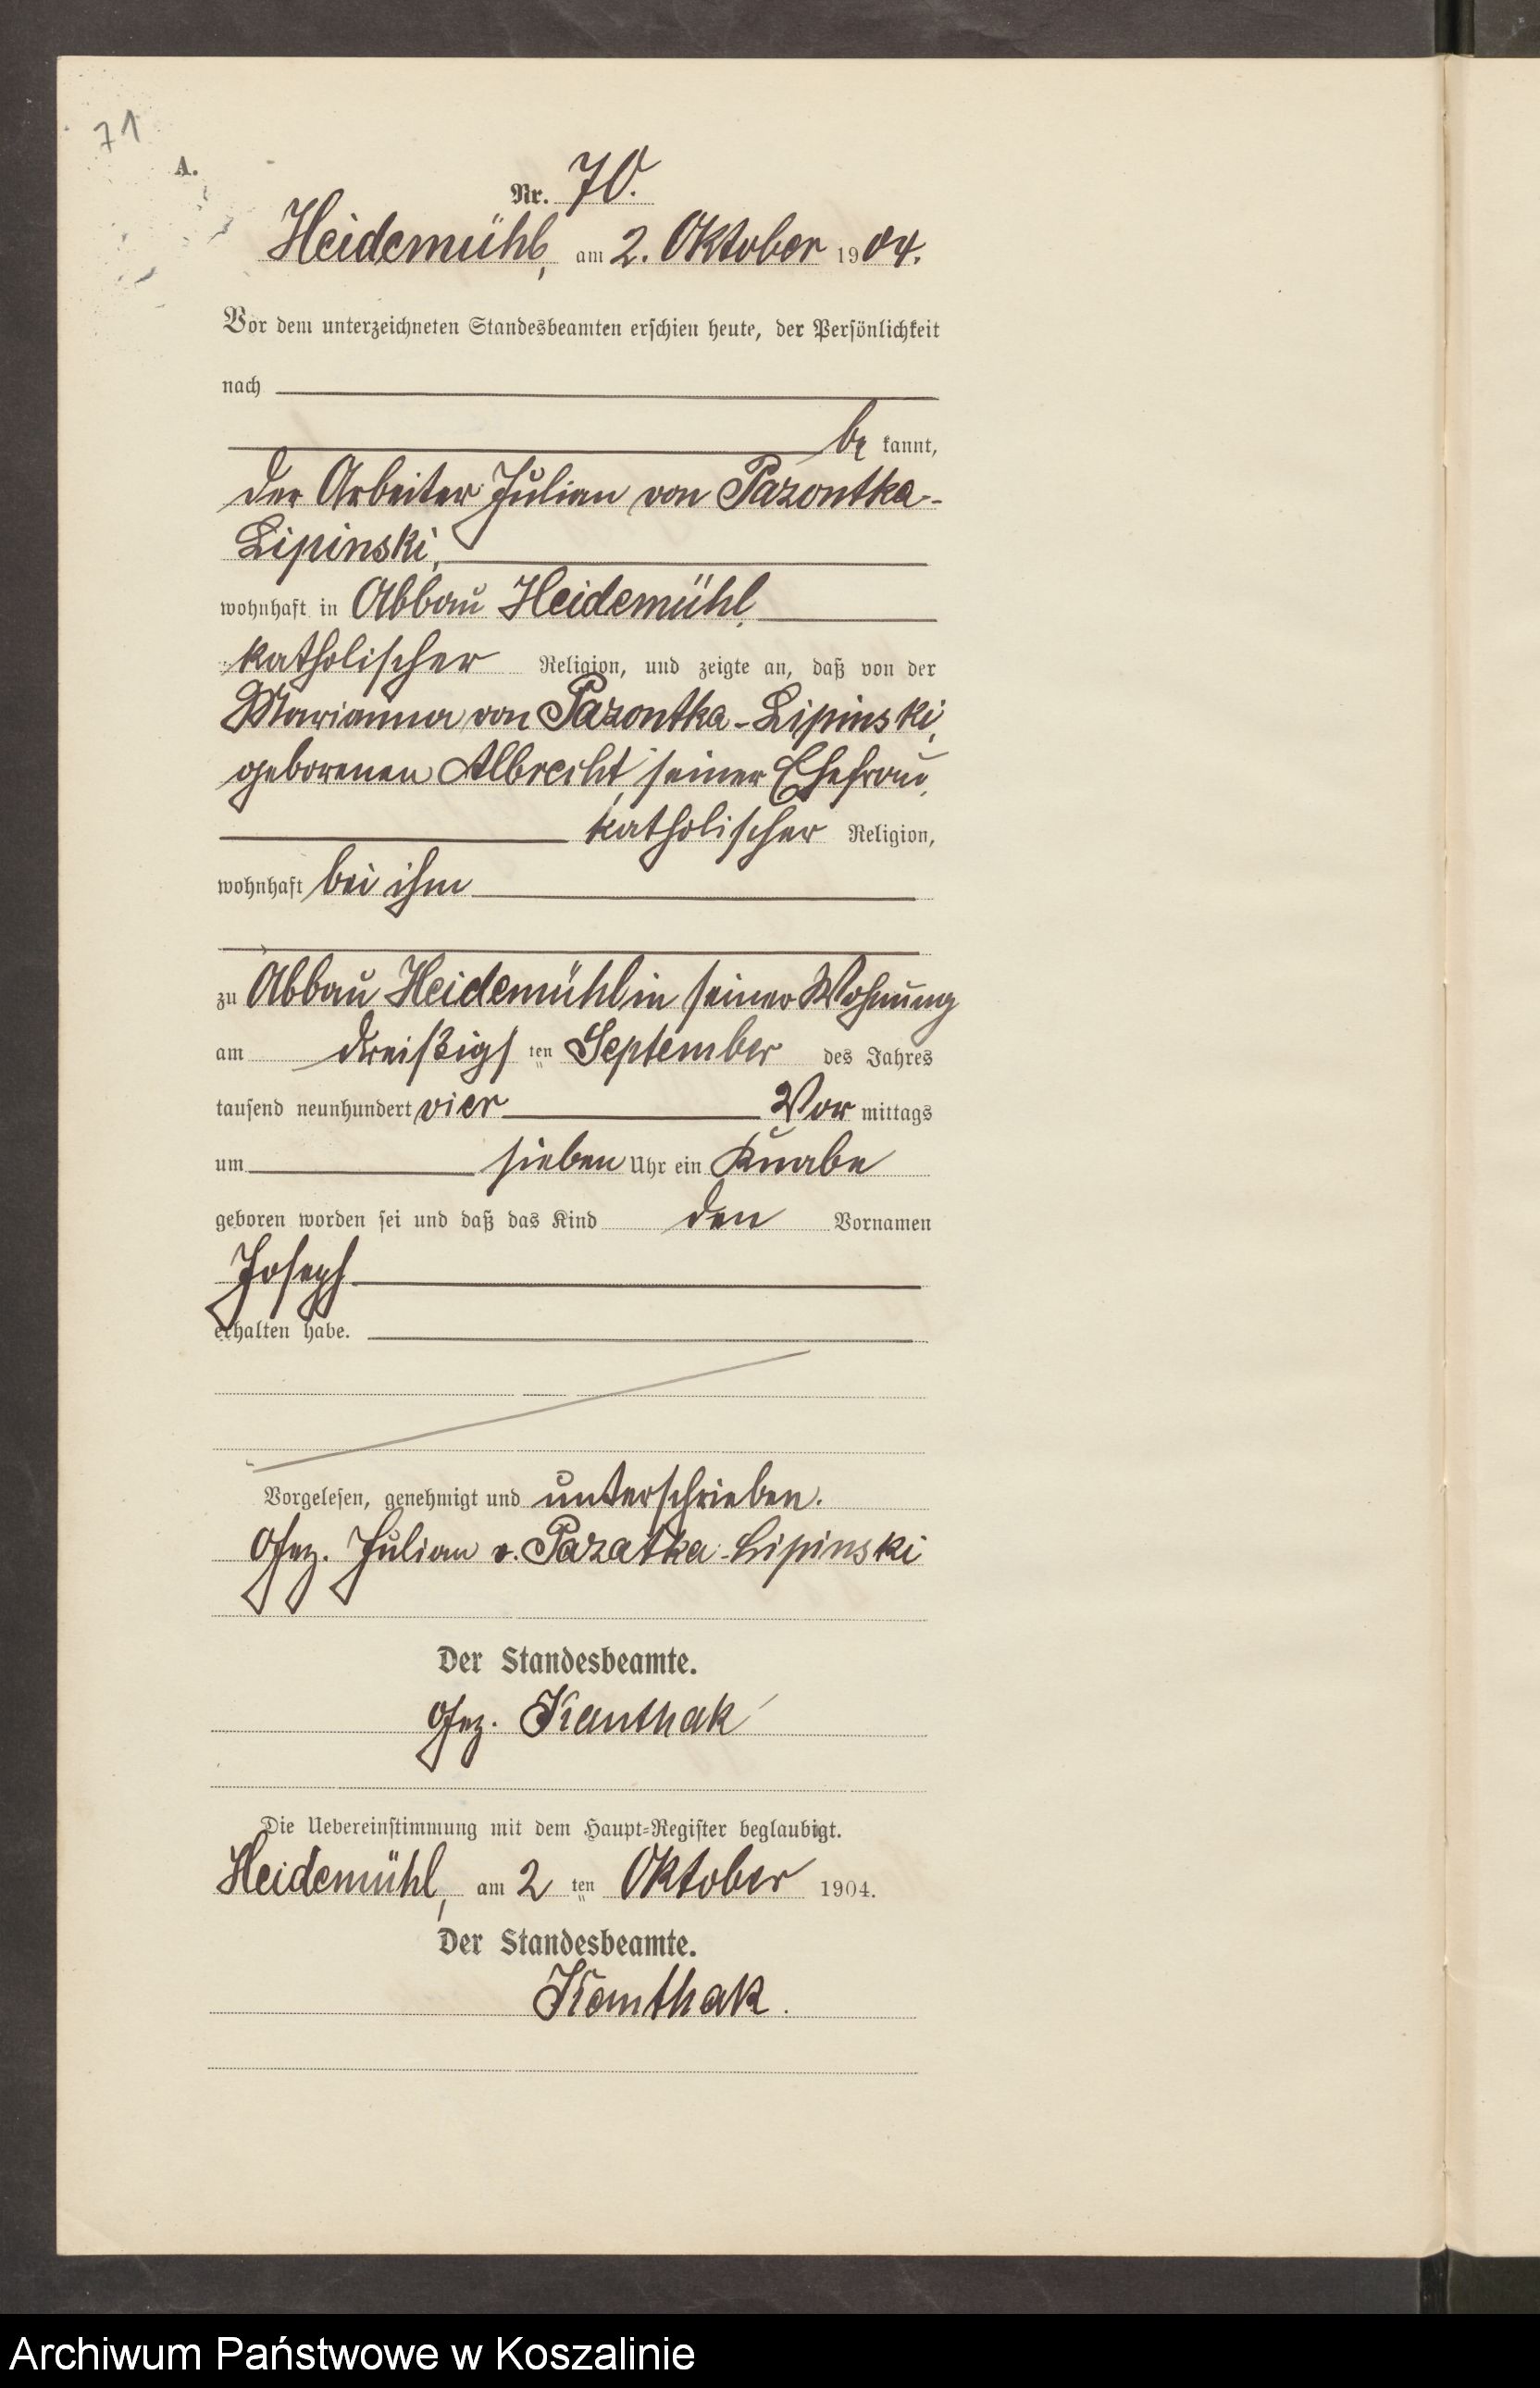 71
A.
Nr. 70.
Heidemühl, am 2. Oktober 1904.
Vor dem unterzeichneten Standesbeamten erschien heute, der Persönlichkeit
nach
be kannt,
der Arbeiter Julian von Pazontka-
Lipinski,
wohnhaft in Abbau Heidemühl,
katholischer Religion, und zeigte an, daß von der
Marianna von Pazontka-Lipinski,
geborenen Albrecht, seiner Ehefrau,
katholischer Religion,
wohnhaft bei ihm
zu Abbau Heidemühl in seiner Wohnung
am dreißigs ten September des Jahres
tausend neunhundert vier Vor mittags
um sieben Uhr ein Knabe
geboren worden sei und daß das Kind den Vornamen
Joseph
erhalten habe.
Vorgelesen, genehmigt und unterschrieben.
Gez. Julian v. Pazatka-Lipinski
Der Standesbeamte.
Gez. Kanthak
Die Uebereinstimmung mit dem Haupt-Register beglaubigt.
Heidemühl, am 2 ten Oktober 1904.
Der Standesbeamte.
Kanthak.
Archiwum Państwowe w Koszalinie